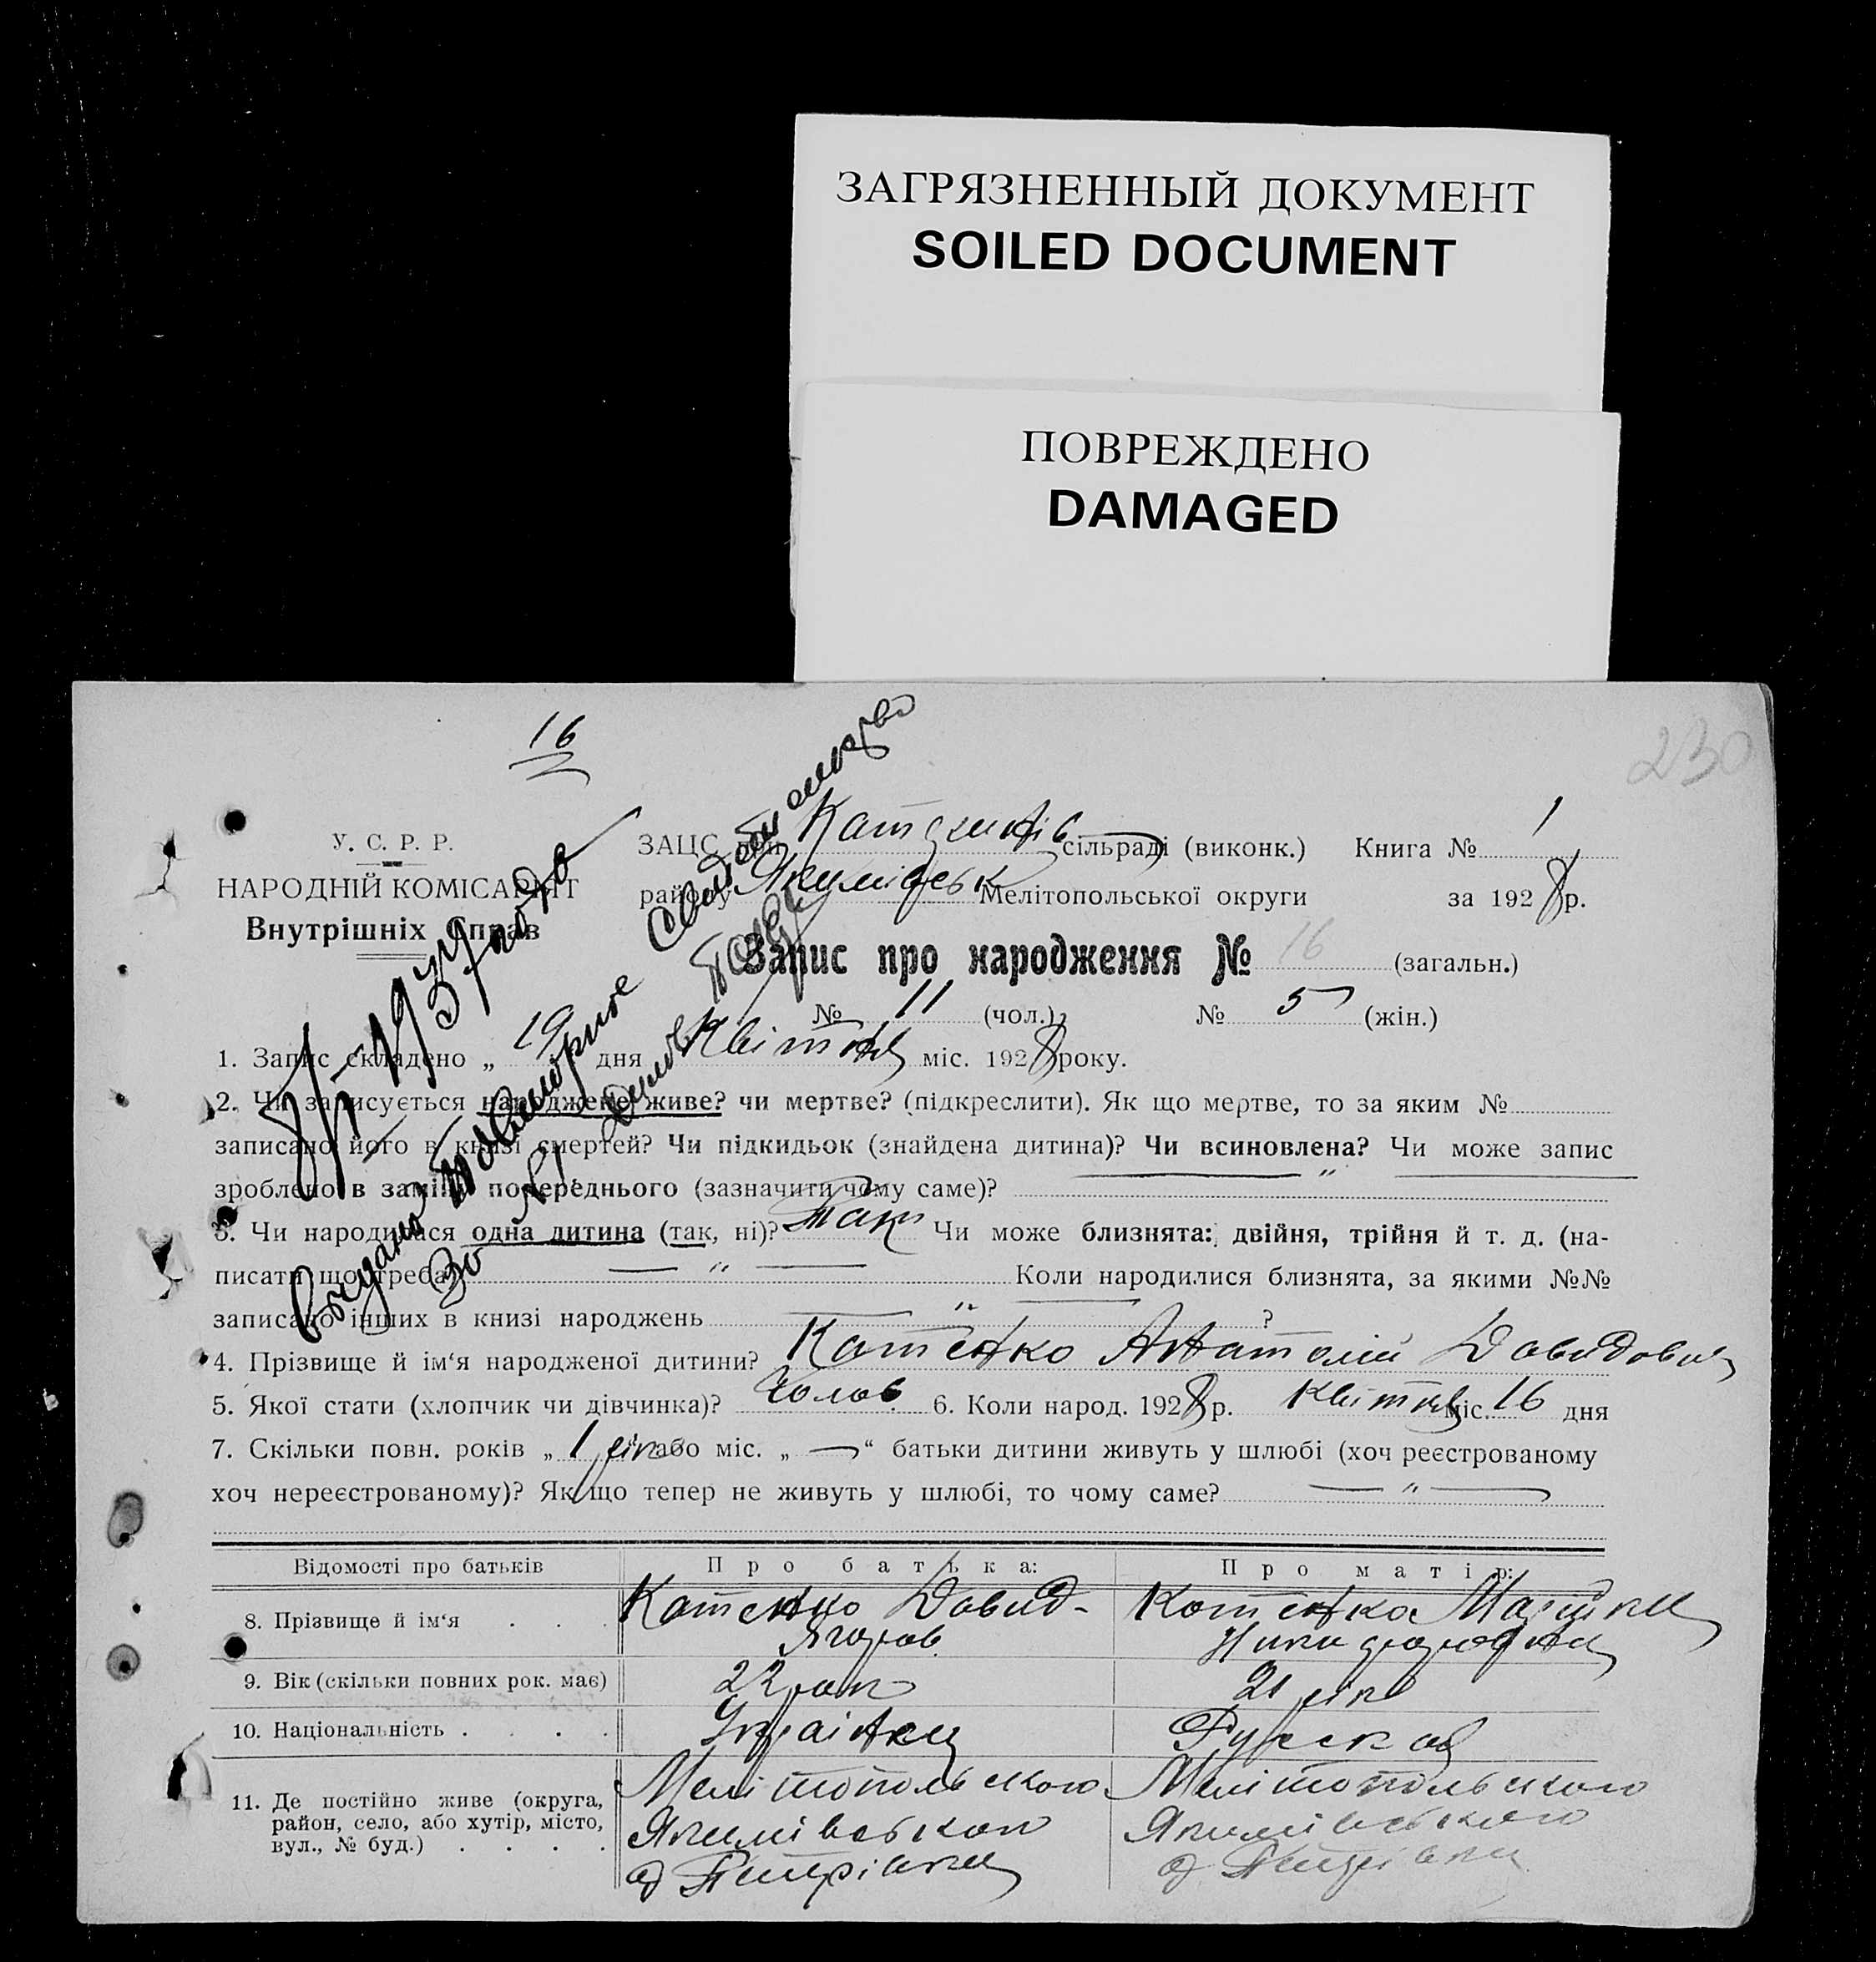 ЗАГРЯЗНЕННЫЙ ДОКУМЕНТ
SOILED DOCUMENT
ПОВРЕЖДЕНО
DAMAGED
16
230
У. С. Р. Р.
НАРОДНІЙ КОМІСАРІЯТ
Внутрішніх Справ
ЗАЦС при сільраді (виконк.) Книга № 1
району Якимівськ Мелітопольської округи за 1928 р.
Запис про народження № 16 (загальн.)
№ 11 (чол.) № 5 (жін.)
Выдано повторное свидетельство
1. Запис складено „ 19 дня Квітня міс. 1928 року.
2. Чи записується народжене живе? чи мертве? (підкреслити). Як що мертве, то за яким №
записано його в книзі смертей? Чи підкидьок (знайдена дитина)? Чи всиновлена? Чи може запис
зроблено в заміну попереднього (зазначити чому саме)? — „ —
3. Чи народилася одна дитина (так, ні)? Так Чи може близнята: двійня, трійня й т. д. (на-
писати що треба) — „ — Коли народилися близнята, за якими №№
записано інших в книзі народжень — „ — ?
4. Прізвище й ім‘я народженої дитини? Катенко Анатолій Давидович
5. Якої стати (хлопчик чи дівчинка)? Чолов. 6. Коли народ. 1928 р. Квітня міс. 16 дня
7. Скільки повн. років „ 1 рік або міс. „ — “ батьки дитини живуть у шлюбі (хоч реєстрованому
хоч нереєстрованому)? Як що тепер не живуть у шлюбі, то чому саме? — „ —
Відомості про батьків Про батька: Про матір:
8. Прізвище й ім‘я . . . Катенко Давид Катенко
Ягоров. Никифоровна
9. Вік (скільки повних рок. має) 22 рок 21 рік
10. Національність . . . . Українец Русская
11. Де постійно живе (округа, Мелітопольського Мелітопольського
район, село, або хутір, місто, Якимівського Якимівського
вул., № буд.) . . . . д Петрівка д. Петрівка